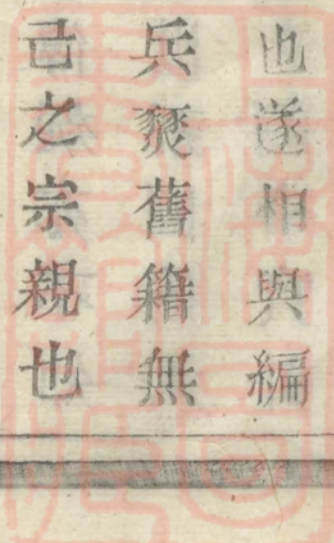 也遂相與編
兵燹舊籍無
己之宗親也